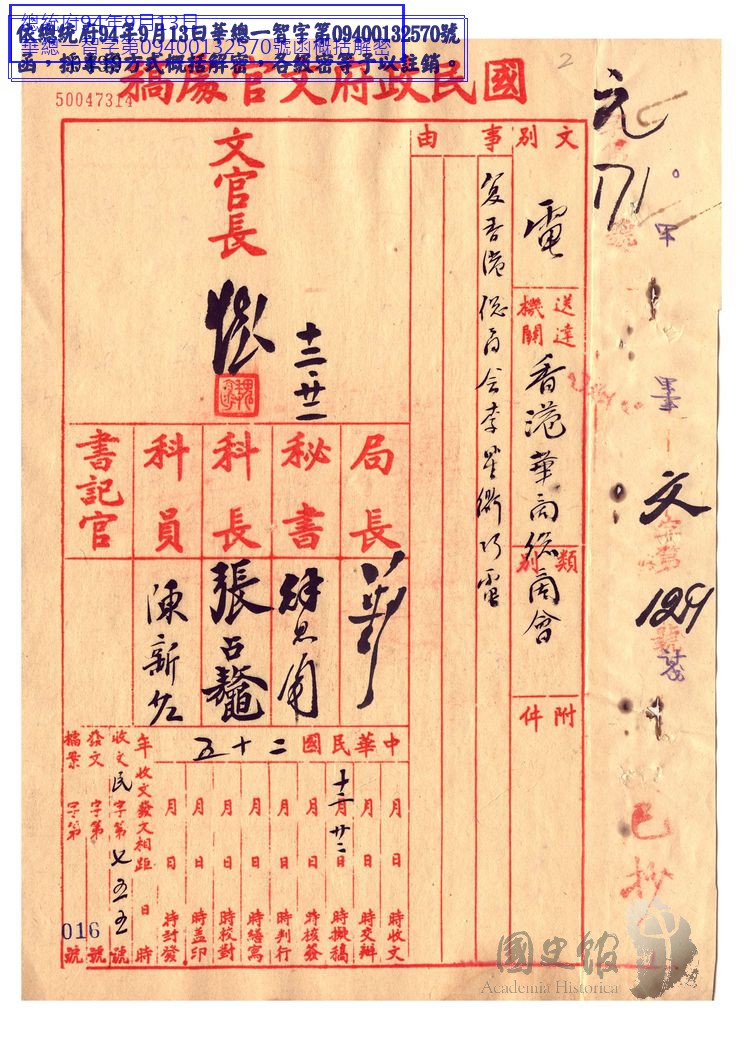 總統府94年9月13日
華總一智字第09400132570號函概括解密
依總統府94年9月13日華總一智字第09400132570號
函，採專案方式概括解密，各級密等予以註銷。
國民政府文官處稿
50047314
2
文別
電
送達機關
香港華商總商會
類別
附件
事由
復香港總商會李星衢巧電
文官長
十二、廿二
局長
秘書
科長
張占鰲
科員
陳新
書記官
中華民國二十五年
月日時收文
月日時交辦
十二月廿二日時擬稿
月日時核簽
月日時判行
月日時繕寫
月日時校對
月日時蓋印
月日時封發
收文發文相距日時
收文民字第七五五號
發文字第號
檔案字第號
016
元
171
文
字第
129
號
已抄
國史館
Academia Historica